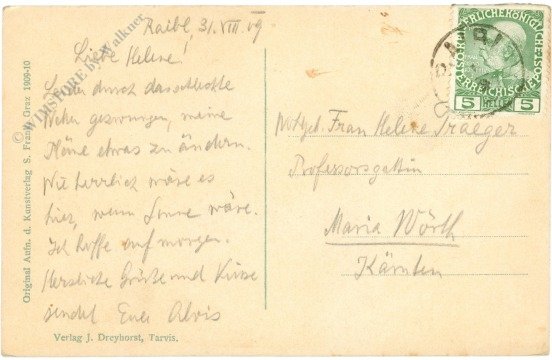 Raibl, 31.VIII.09
Liebe Helene!
durch das schlechte
gezwungen, meine
Pläne etwas zu ändern.
Wie herrlich wäre es
hier, wenn Sonne wäre.
Ich hoffe auf morgen.
Herzliche Grüße und Küsse
sendet Euer Alois
Verlag J. Dreyhorst, Tarvis.
Original Aufn. d. Kunstverlag S. Frank, Graz 1909-10
© WIMSTORE by Walkner
5 HELLER 5
Frau Helene Traeger
Professorsgattin
Maria Wörth
Kärnten